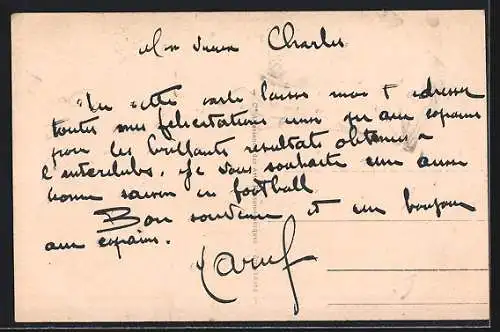 Mon vieux Charles
Sur cette carte laisses moi t'adresser
toutes mes félicitations ainsi qu'aux copains
pour les brillants résultats obtenus
l'interclubs. Je vous souhaite une aussi
bonne saison en football
Bon souvenir et un bonjour
aux copains.